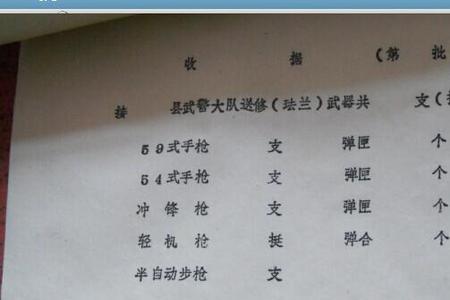 收 据 (第 批
接 县武警大队送修(珐兰)武器共 支(
59式手枪 支 弹匣 个
54式手枪 支 弹匣 个
冲 锋 枪 支 弹匣 个
轻 机 枪 挺 弹合 个
半自动步枪 支